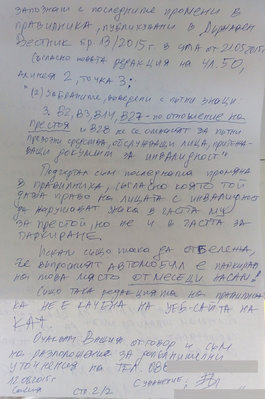 запознат с последните промени в
правилника, публикувани в Държавен
Вестник бр. 13/2015 г. в сила от 21.03.2015 г.
Съгласно новата редакция на чл. 50,
алинея 2, точка 3:
"(2) Забраните, въведени с пътни знаци:
3. В2, В3, В14, В27 - по отношение на
престоя и В28 не се отнасят за пътни
превозни средства, обслужващи лица, притежа-
ващи документ за инвалидност"
съм последната промяна
в правилника, съгласно която той
дава право на лицата с инвалидност
да нарушават знака в частта му
за престой, но не и в частта за
паркиране.
Искам също така да отбележа
че въпросният автомобил е паркиран
на това място от месеци насам!
Също така редакцията на правилни-
ка не е качена на уеб-сайта на
КАТ.
Очаквам Вашия отговор и съм
на разположение за допълнителни
уточнения на тел. 088
София стр. 2/2 С уважение,